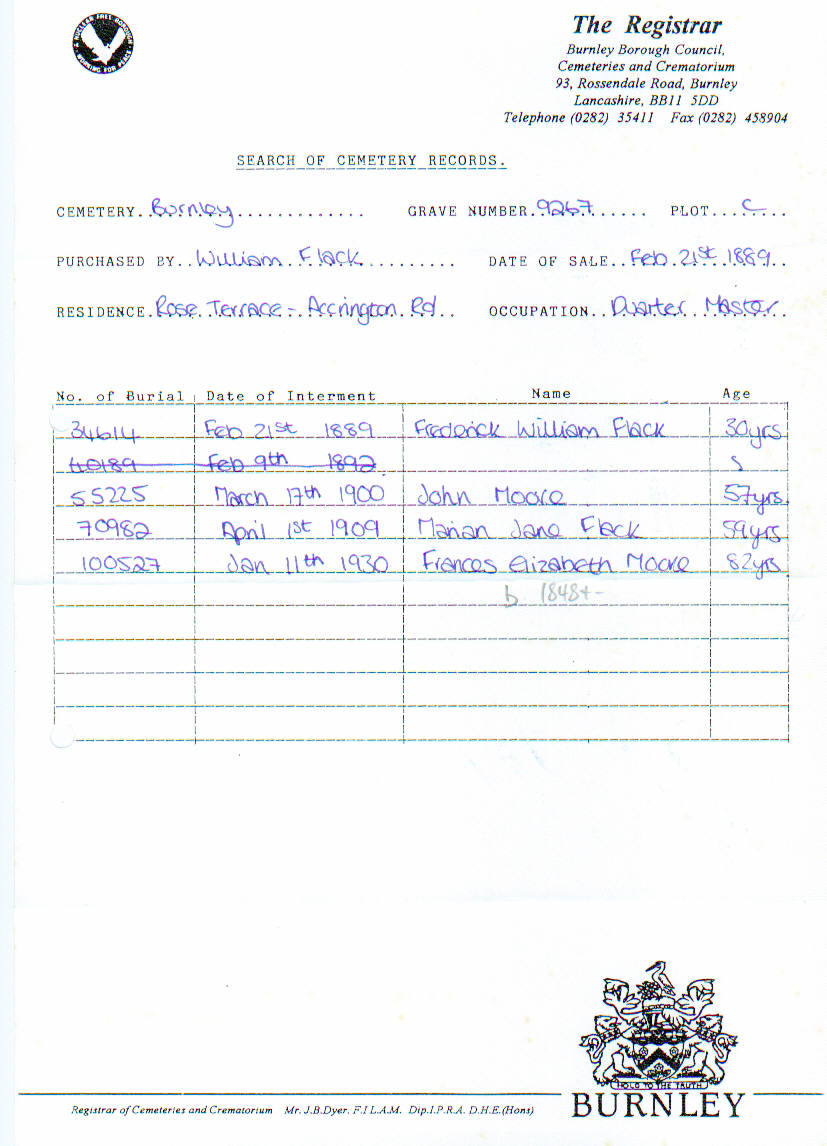 NUCLEAR FREE BOROUGH
The Registrar
Burnley Borough Council,
Cemeteries and Crematorium
93, Rossendale Road, Burnley
Lancashire, BB11 5DD
Telephone (0282) 35411 Fax (0282) 458904
SEARCH OF CEMETERY RECORDS.
CEMETERY..Burnley............. GRAVE NUMBER..9267...... PLOT...C.....
PURCHASED BY..William Flack......... DATE OF SALE..Feb 21st 1889..
RESIDENCE.Rose Terrace - Accrington Rd.. OCCUPATION..Quarter Master..
No. of Burial Date of Interment Name Age
34614 Feb 21st 1889 Frederick William Flack 30yrs
40189 Feb 9th 1892
55225 March 17th 1900 John Moore 57yrs
70982 April 1st 1909 Marian Jane Flack 59yrs
100527 Jan 11th 1930 Frances Elizabeth Moore 82yrs
b 1848+-
HOLD TO THE TRUTH
BURNLEY
Registrar of Cemeteries and Crematorium Mr. J.B.Dyer. F.I.L.A.M. Dip.I.P.R.A. D.H.E.(Hons)